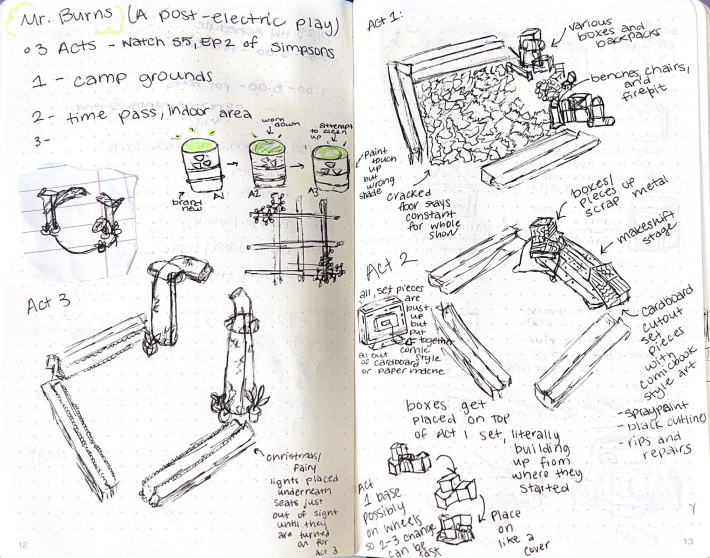 Mr. Burns (A post-electric play)
o 3 Acts - Watch S5, EP2 of Simpsons
1 - camp grounds
2 - time pass, indoor area
3 -
brand
new
A1
worn
down
A2
attempt
to clean
up
A3
Act 3
christmas/
fairy
lights placed
underneath
seats just
out of sight
until they
are turned
on for
act 3
12
Act 1:
various
boxes and
backpacks
benches, chairs,
and
firepit
paint
touch
up
but
wrong
shade
cracked
floor stays
constant
for whole
show
Act 2
boxes/
pieces of
scrap metal
makeshift
stage
all set pieces
are
bust
up
but
put
together
comic
style
all out
of cardboard
or paper mache
cardboard
cutout
set
pieces
with
comicbook
style art
- spraypaint
- black outlines
- rips and
repairs
boxes get
placed on top
of Act 1 set, literally
building
up from
where they
started
Act
1 base
possibly
on wheels
so 2-3 change
can be
fast
Place
on
like a
cover
13